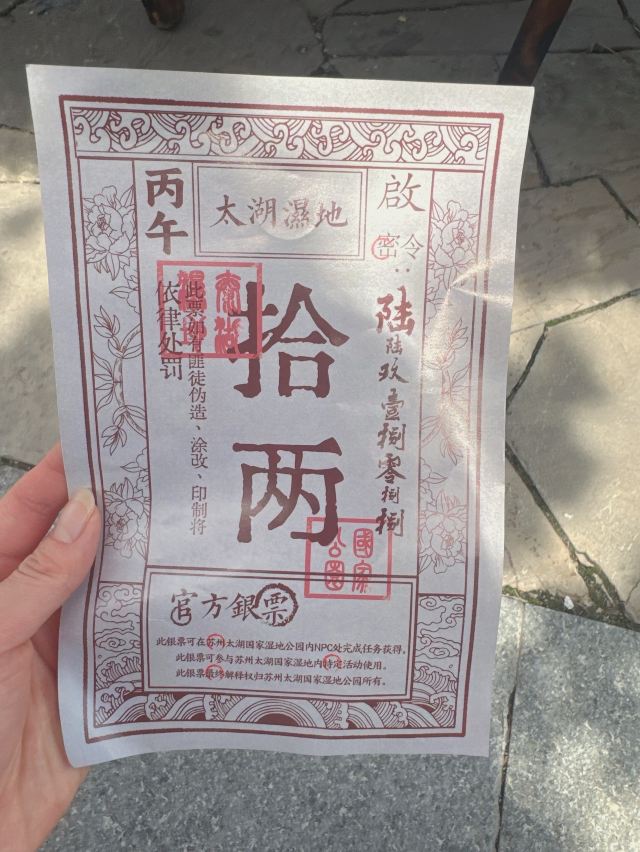 太湖濕地
啟
密令：
陸陸玖壹捌零捌捌
拾两
丙午
此票如有匪徒伪造、涂改、印制将
依律处罚
國家公園
官方銀票
此银票可在苏州太湖国家湿地公园内NPC处完成任务获得。
此银票可参与苏州太湖国家湿地内特定活动使用。
此银票最终解释权归苏州太湖国家湿地公园所有。